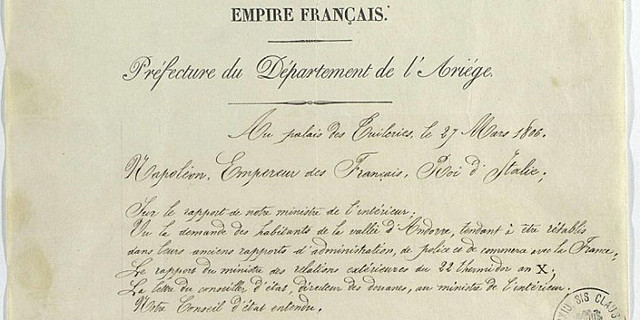 EMPIRE FRANÇAIS.
Préfecture du Département de l'Ariége.
Au palais des Tuileries, le 27 Mars 1806.
Napoléon, Empereur des Français, Roi d'Italie;
Sur le rapport de notre ministre de l'intérieur;
Vu la demande des habitants de la vallée d'Andorre, tendant à être rétablis
dans leurs anciens rapports d'administration, de police et de commerce avec la France,
Le rapport du ministre des relations extérieures du 22 thermidor an X;
La lettre du conseiller d'état, directeur des douanes, au ministre de l'intérieur.
Notre Conseil d'état entendu,
SIS CLAUS